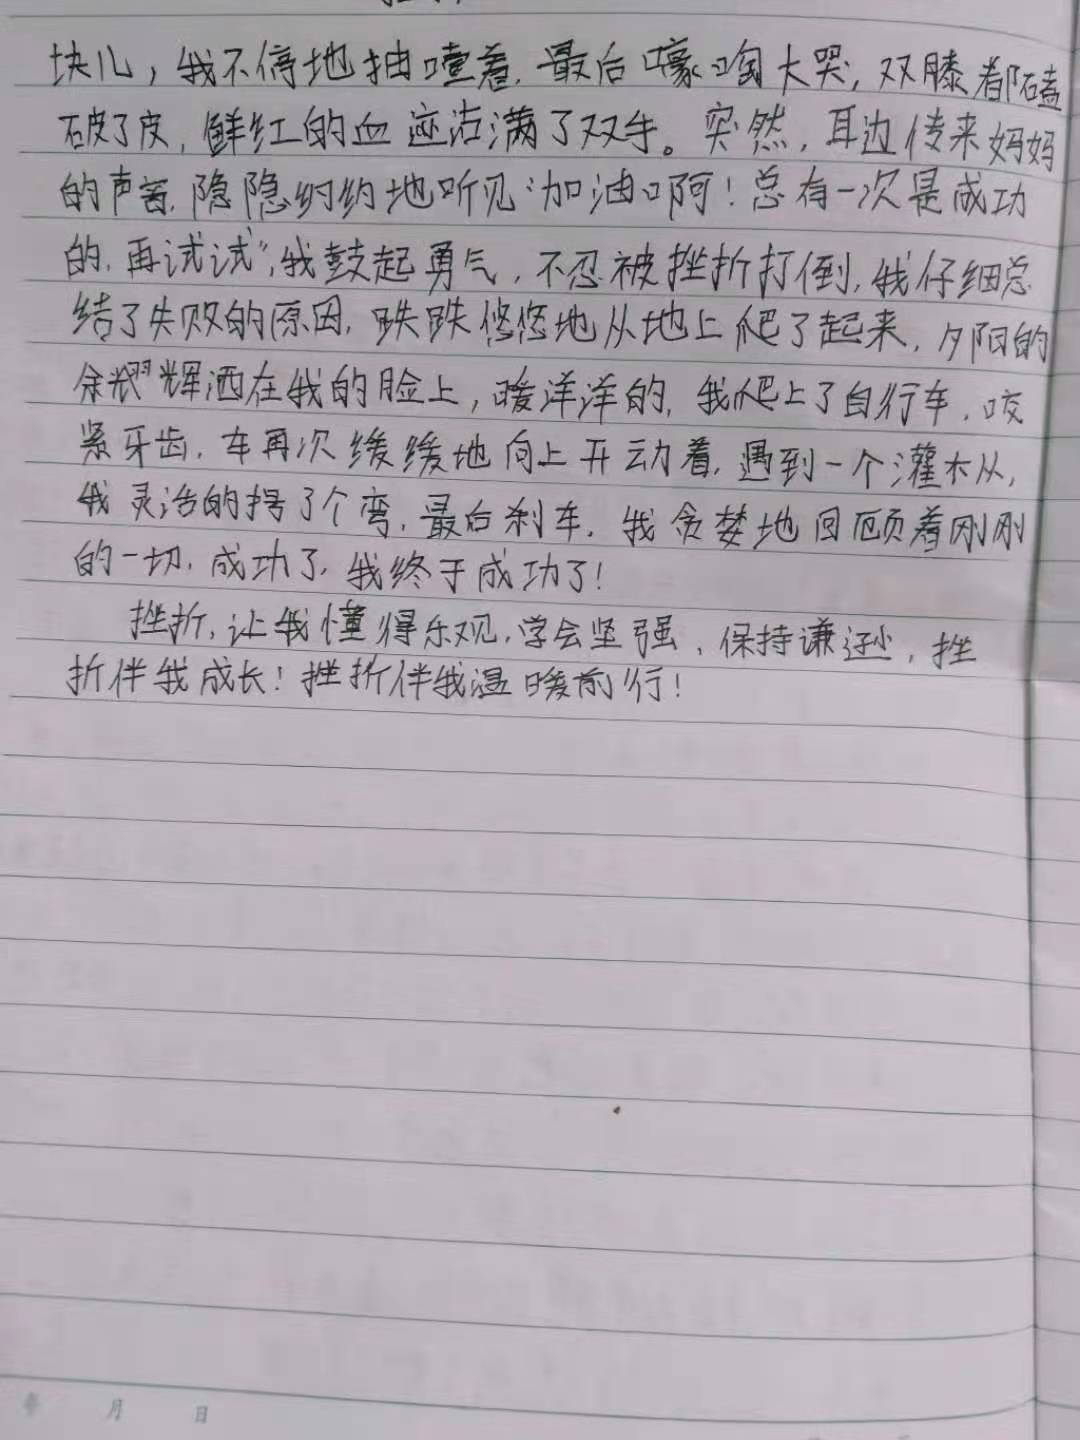 块儿，我不停地抽噎着，最后嚎啕大哭，双膝都磕
破了皮，鲜红的血迹沾满了双手。突然，耳边传来妈妈
的声音，隐隐约约地听见“加油啊！总有一次是成功
的，再试试”，我鼓起勇气，不忍被挫折打倒，我仔细总
结了失败的原因，跌跌悠悠地从地上爬了起来，夕阳的
余耀辉洒在我的脸上，暖洋洋的，我爬上了自行车，咬
紧牙齿，车再次缓缓地向上开动着，遇到一个灌木从，
我灵活的拐了个弯，最后刹车，我贪婪地回顾着刚刚
的一切，成功了，我终于成功了！
挫折，让我懂得乐观，学会坚强、保持谦逊，挫
折伴我成长！挫折伴我温暖前行！
年 月 日